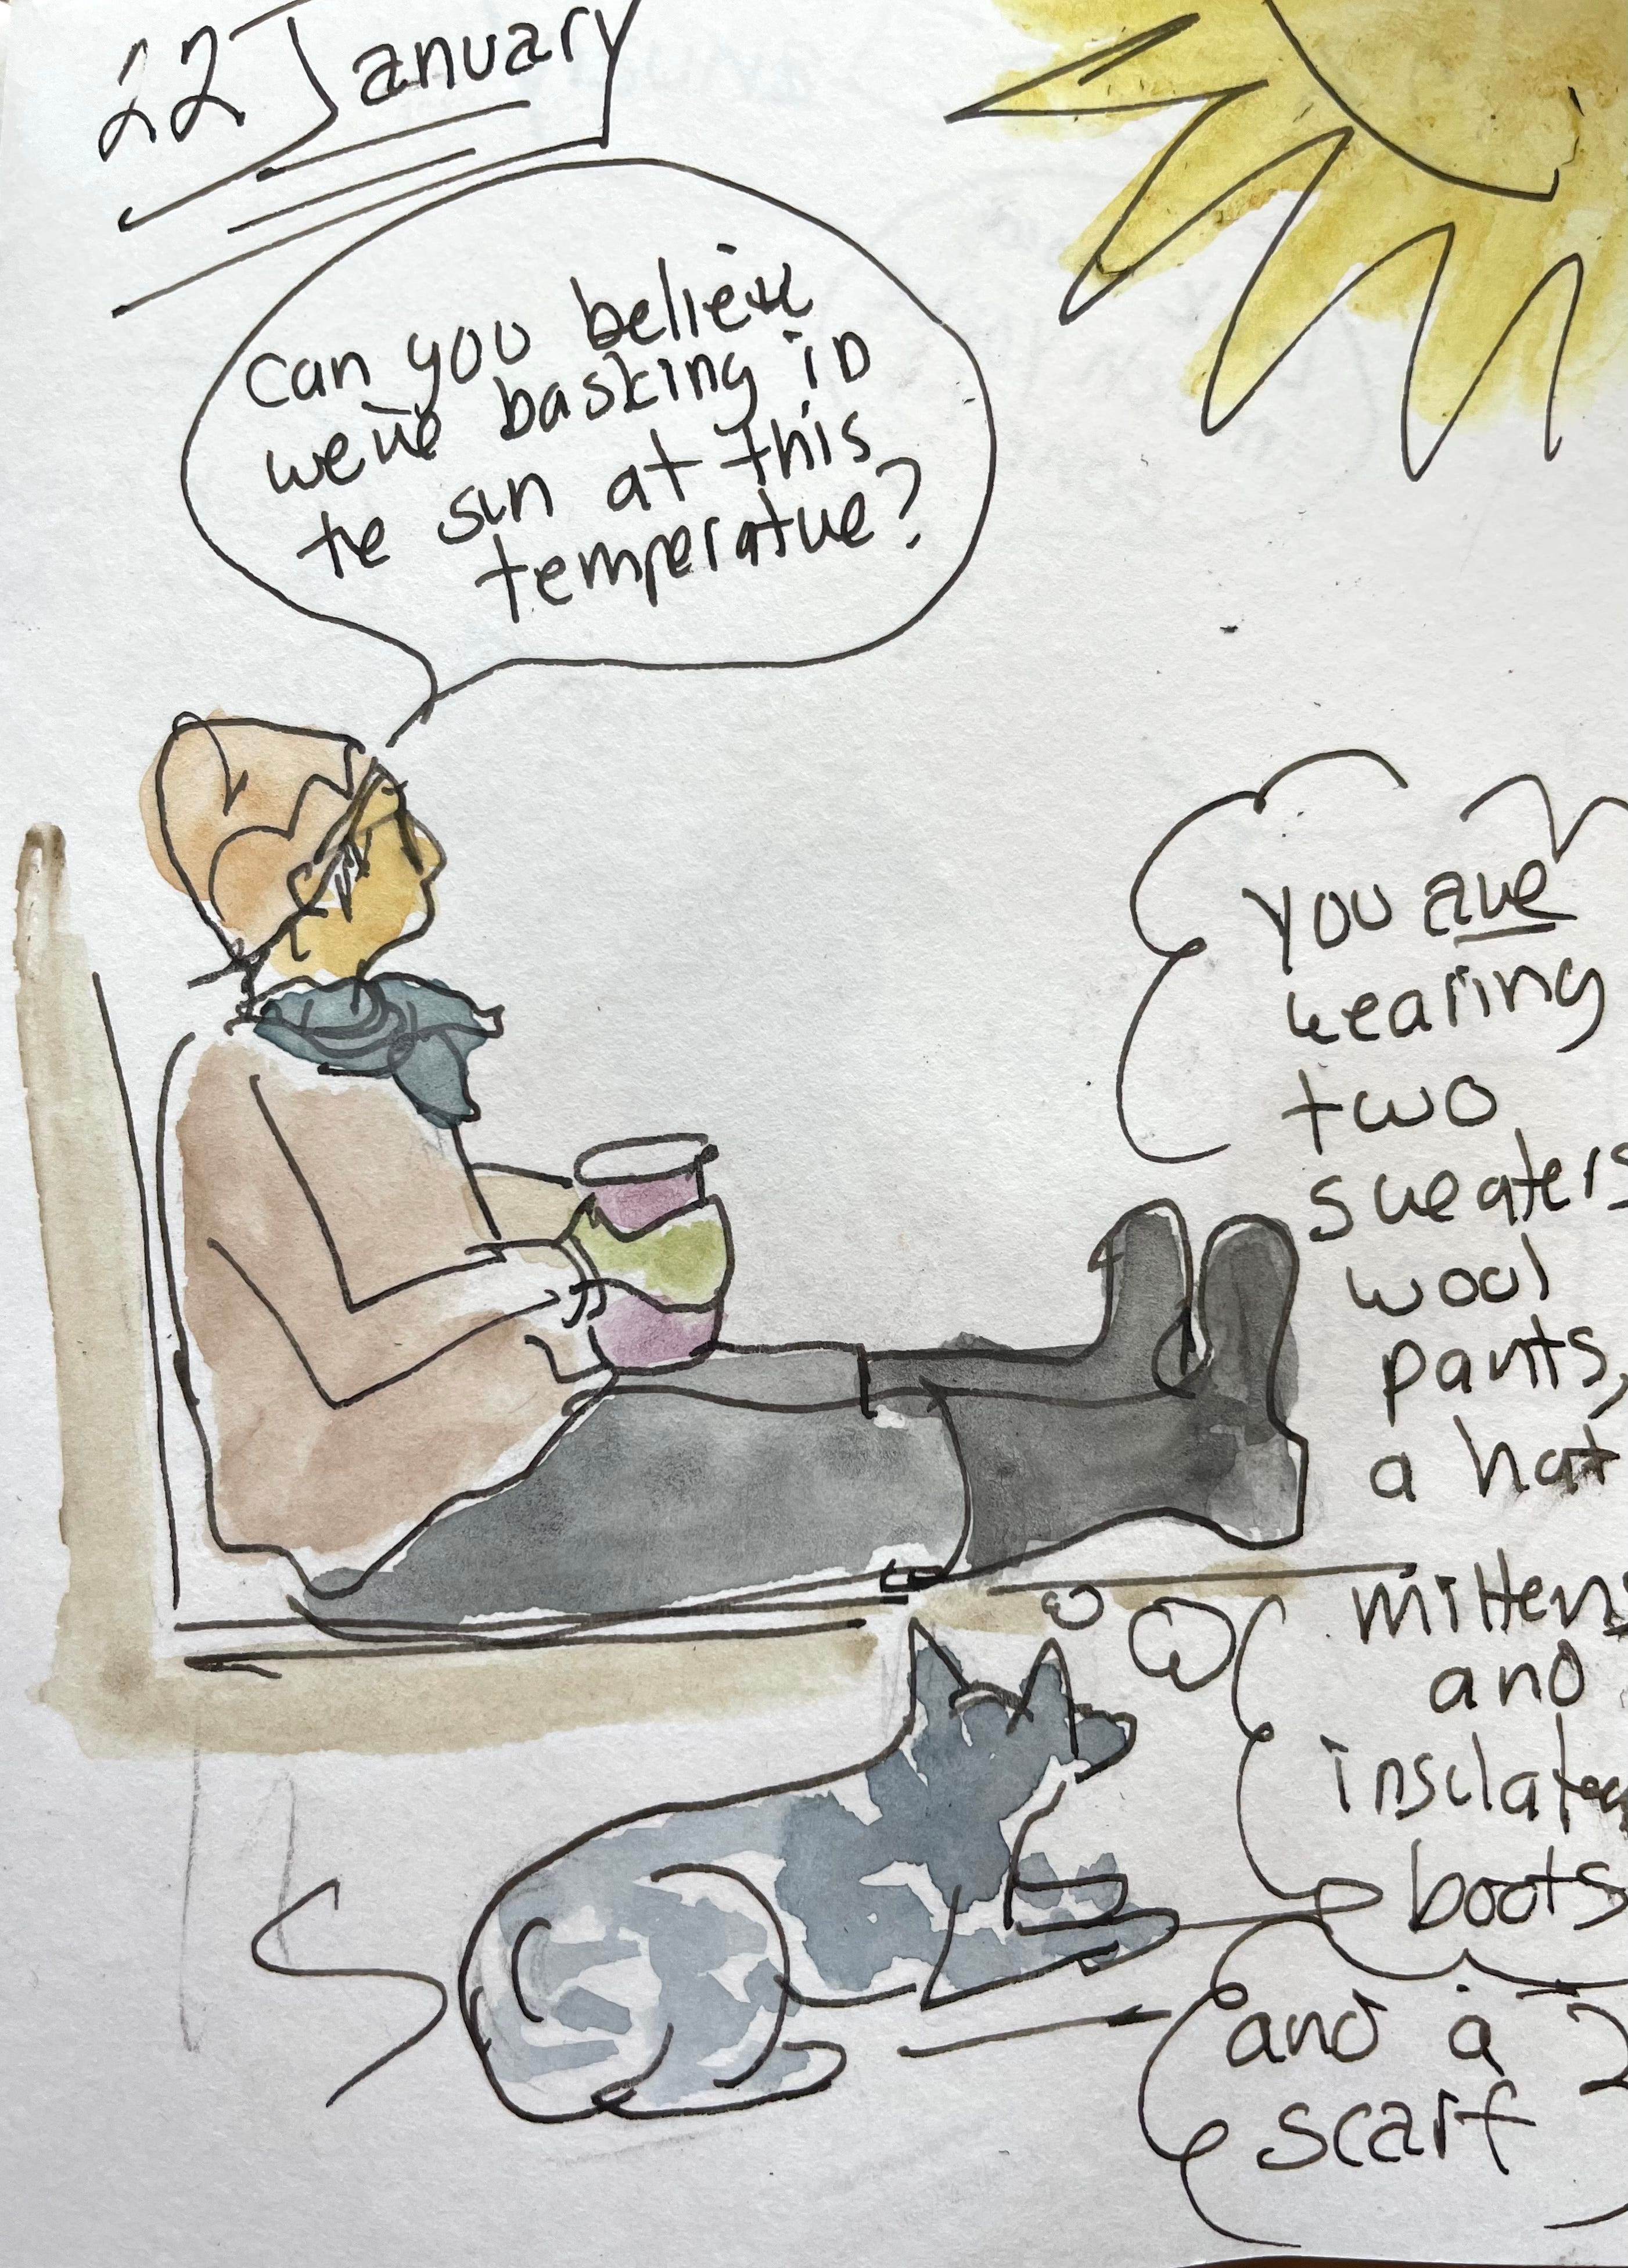 22 January
Can you believe
we're basking in
te sun at this
temperature?
you are
wearing
two
sweaters
wool
pants,
a hat
mittens
and
insulated
boots
and a
scarf